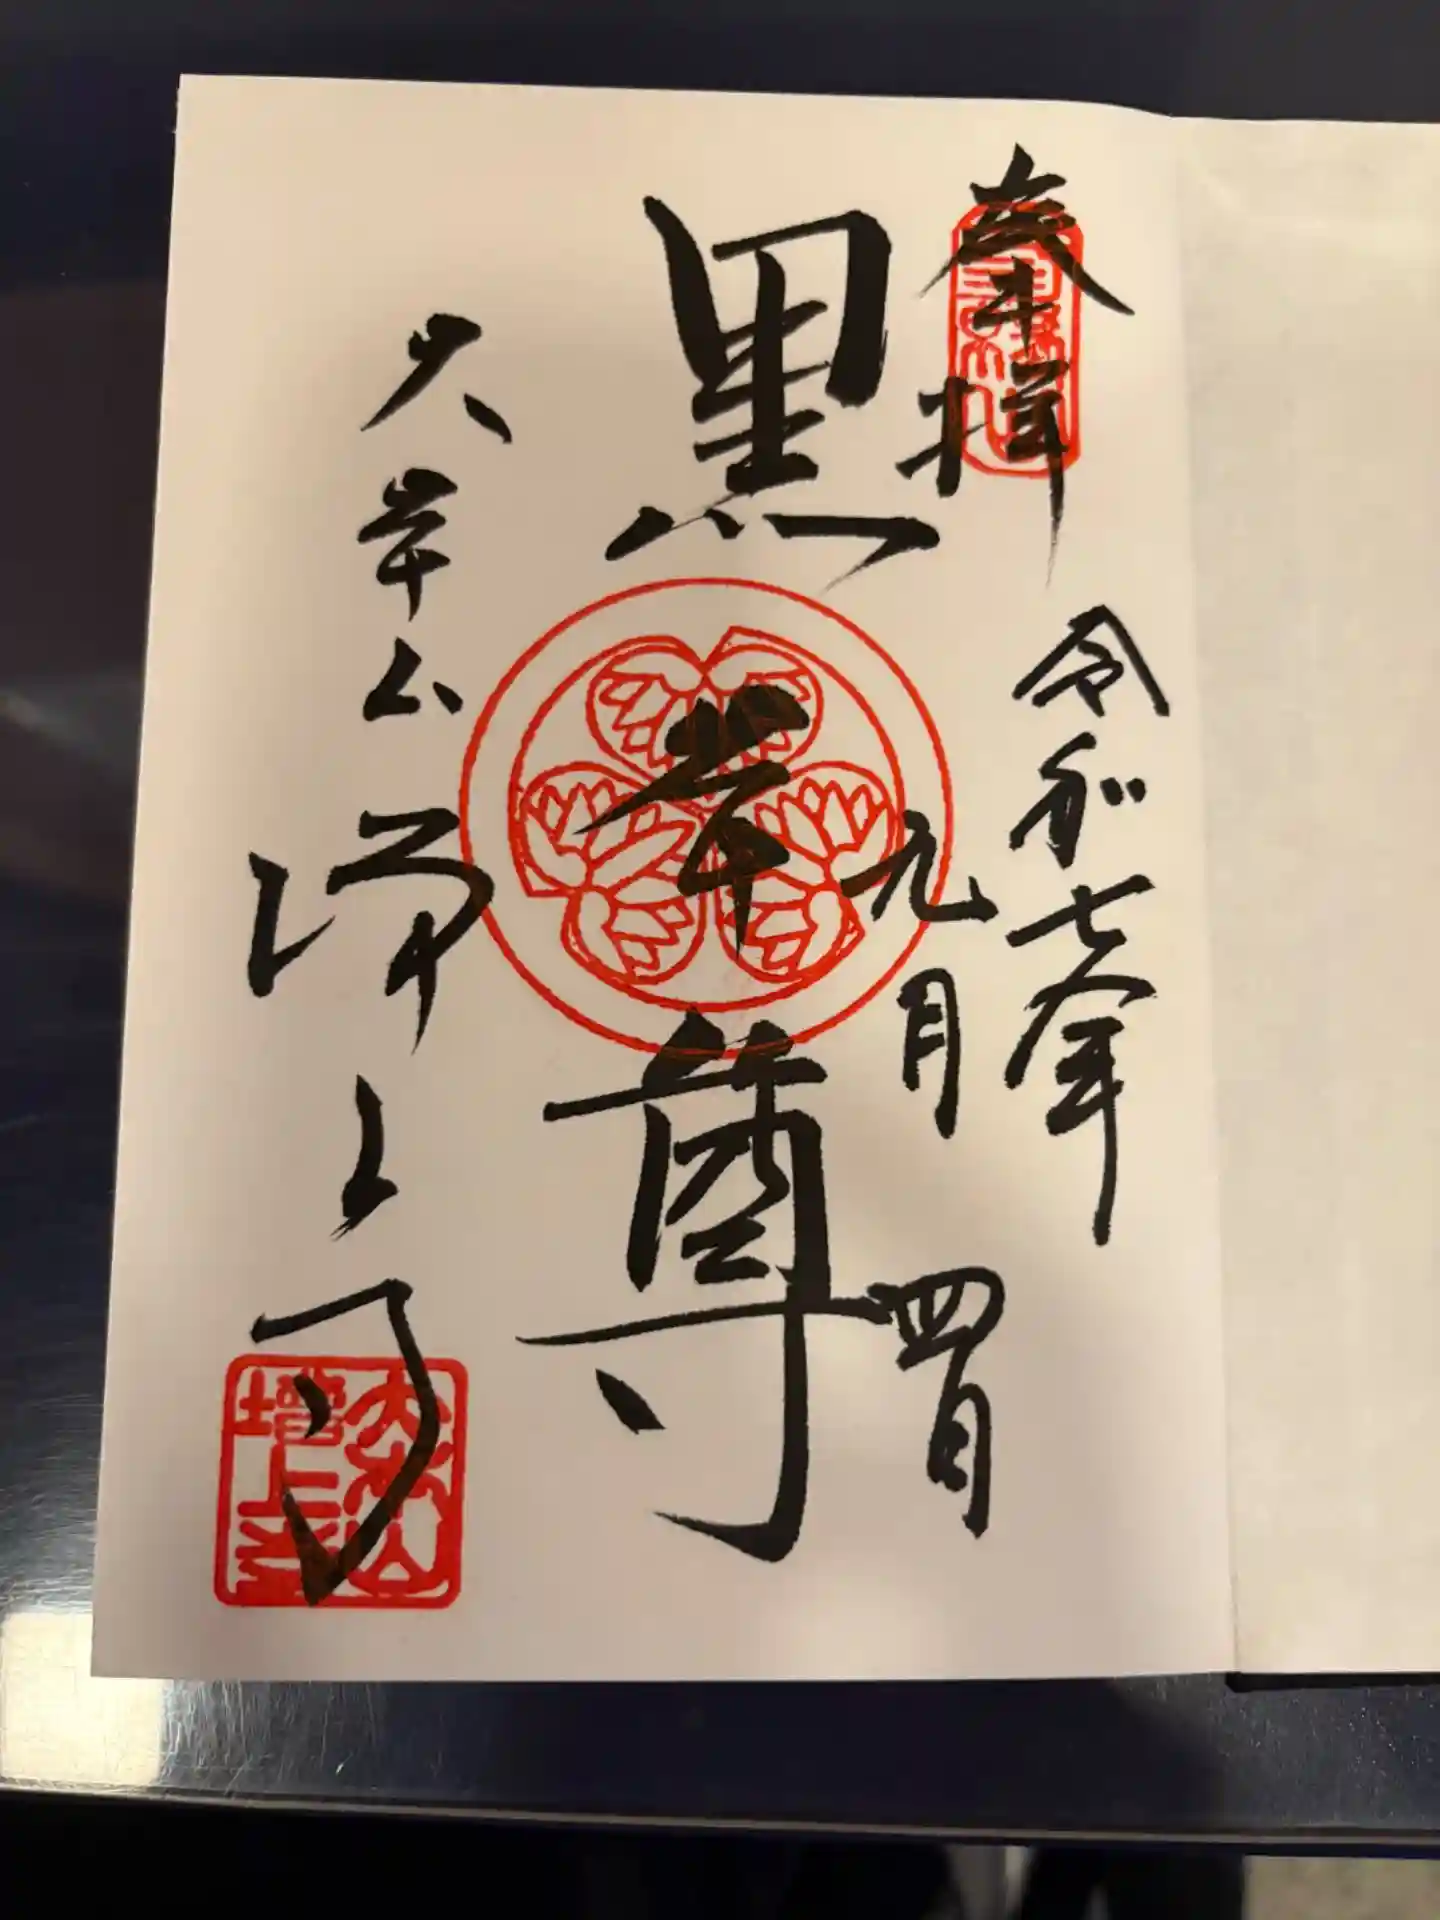 奉拝
令和七年
九月
四日
黒本尊
大本山
増上寺
大本山
増上寺